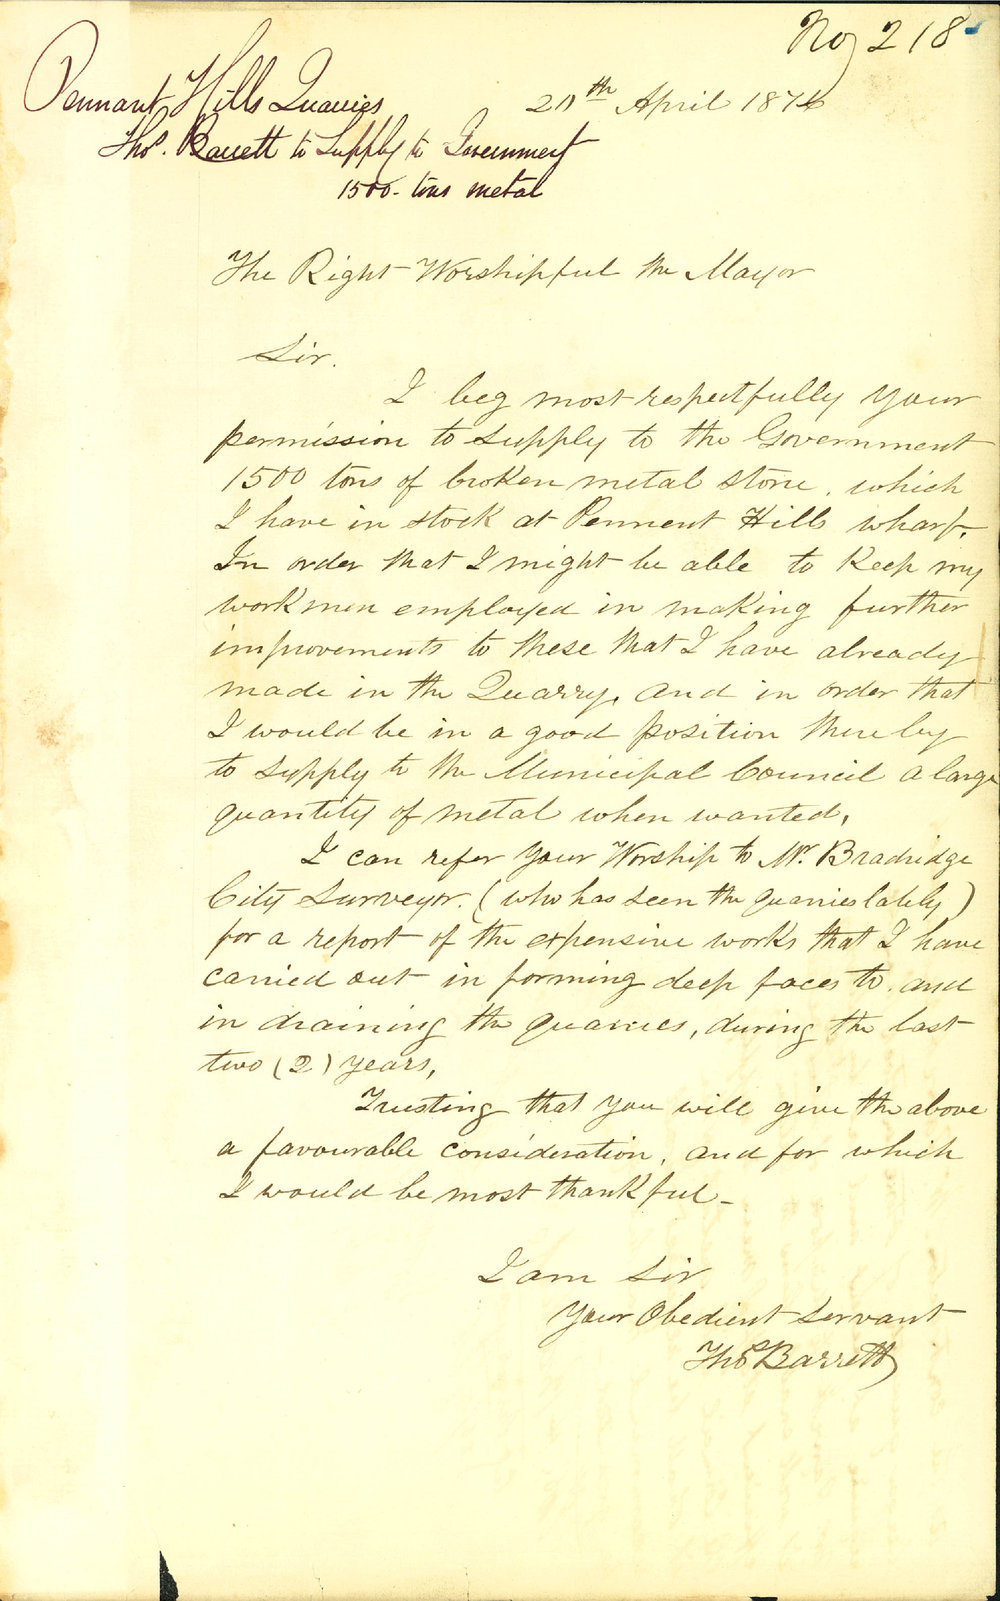 No 218
Pennant Hills Quarries
20th April 1874
Thos. Barrett to Supply to Government
1500 tons metal
The Right Worshipful the Mayor
Sir.
I beg most respectfully your
permission to supply to the Government
1500 tons of broken metal stone, which
I have in stock at Pennent Hills wharf,
In order that I might be able to keep my
workmen employed in making further
improvements to these that I have already
made in the Quarry, and in order that
I would be in a good position thereby
to supply to the Municipal Council a large
quantity of metal when wanted,
I can refer your Worship to Mr. Bradridge
City Surveyor. (who has seen the quarries lately)
for a report of the expensive works that I have
carried out in forming deep faces to, and
in draining the quarries, during the last
two (2) years,
Trusting that you will give the above
a favourable consideration, and for which
I would be most thankful—
I am Sir
Your Obedient Servant
Thos Barrett